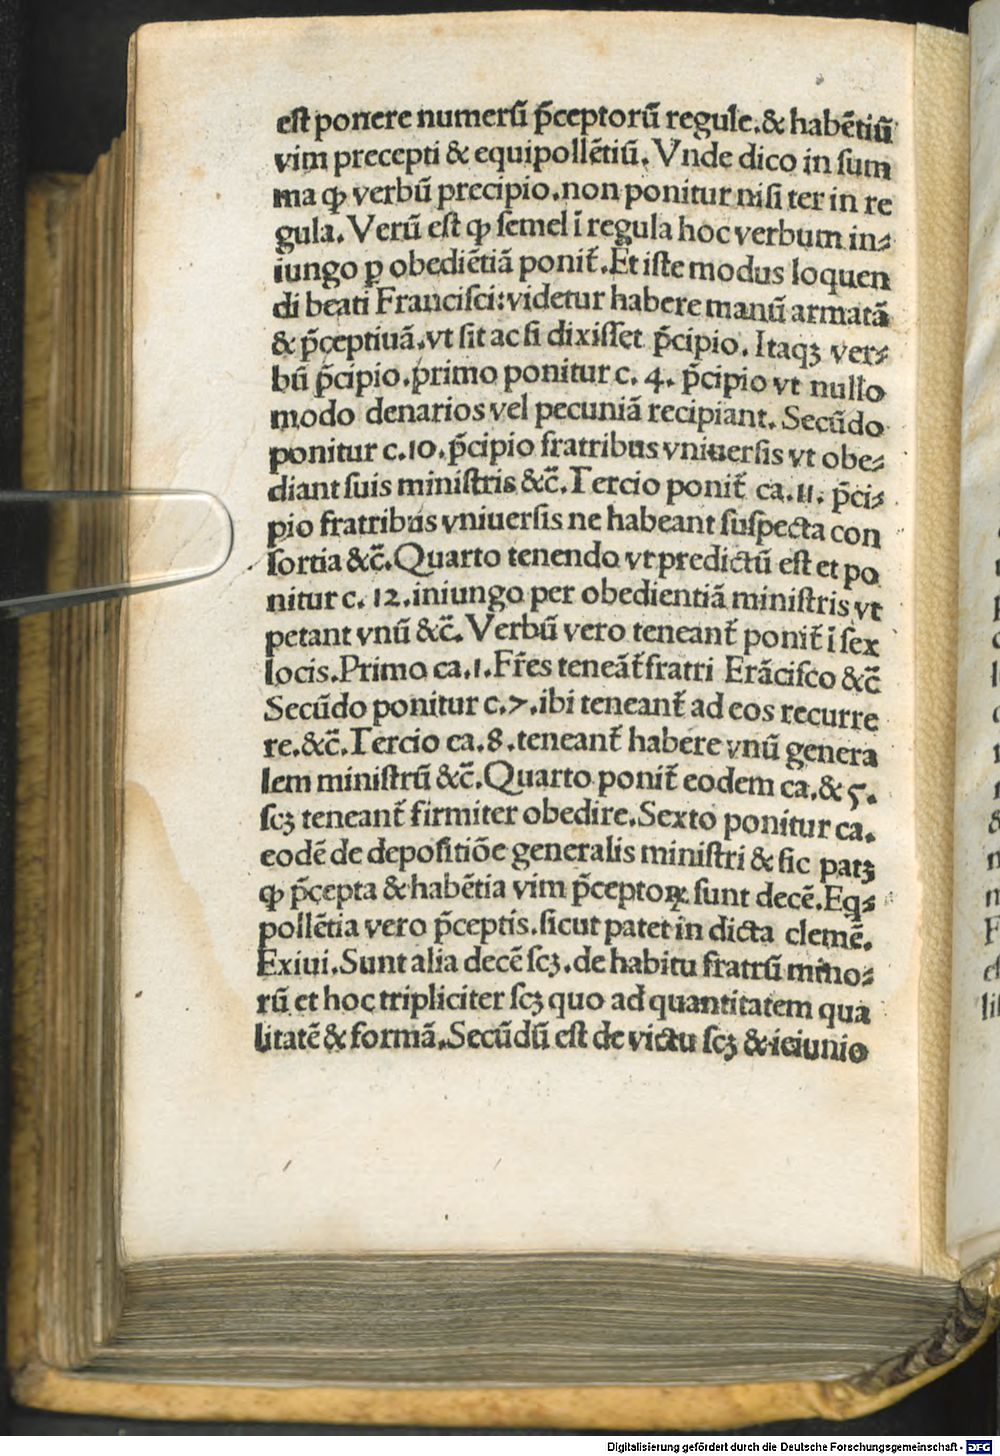 est ponere numerũ p̃ceptorũ regule.& habẽtiũ
vim precepti & equipollẽtiũ. Vnde dico in sum
ma ꝙ verbũ precipio.non ponitur nisi ter in re
gula. Verũ est ꝙ semel ĩ regula hoc verbum in⸗
iungo ꝑ obediẽtiã ponit᷑.Et iste modus loquen
di beati Francisci:videtur habere manũ armatã
& p̃ceptiuã.vt sit ac si dixisset p̃cipio. Itaqꝫ ver⸗
bũ p̃cipio.primo ponitur c. 4. p̃cipio vt nullo
modo denarios vel pecuniã recipiant. Secũdo
ponitur c.10.p̃cipio fratribus vniuersis vt obe⸗
diant suis ministris &c̃.Tercio ponit᷑ ca.11. p̃ci⸗
pio fratribus vniuersis ne habeant suspecta con
sortia &c̃.Quarto tenendo vt predictũ est et po
nitur c. 12.iniungo per obedientiã ministris vt
petant vnũ &c̃. Verbũ vero teneant᷑ ponit᷑ ĩ sex
locis.Primo ca.1.Fr̃es teneãt᷑ fratri Frãcisco &c̃
Secũdo ponitur c.7.ibi teneant᷑ ad eos recurre
re.&c̃.Tercio ca.8.teneant᷑ habere vnũ genera
lem ministrũ &c̃.Quarto ponit᷑ eodem ca.& 5.
scꝫ teneant᷑ firmiter obedire.Sexto ponitur ca.
eodẽ de depositiõe generalis ministri & sic patꝫ
ꝙ p̃cepta & habẽtia vim p̃ceptoꝝ sunt decẽ.Eq⸗
pollẽtia vero p̃ceptis.sicut patet in dicta clemẽ.
Exiui.Sunt alia decẽ scꝫ.de habitu fratrũ mino⸗
rũ et hoc tripliciter scꝫ quo ad quantitatem qua
litatẽ & formã.Secũdũ est de victu scꝫ & ieiunio
Digitalisierung gefördert durch die Deutsche Forschungsgemeinschaft - DFG